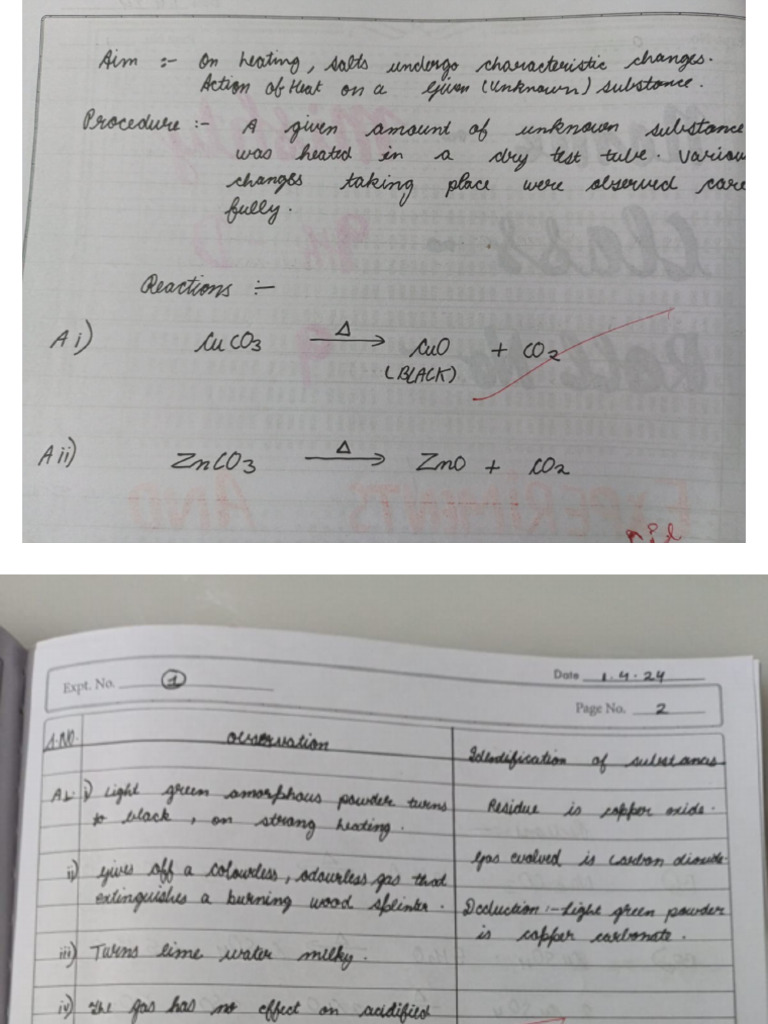 Aim :- On heating, salts undergo characteristic changes.
Action of Heat on a given (unknown) substance.
Procedure :- A given amount of unknown substance
was heated in a dry test tube. Variou
changes taking place were observed care
fully.
Reactions :-
A i) CuCO3 Δ→ CuO + CO2
(BLACK)
A ii) ZnCO3 Δ→ ZnO + CO2
Expt. No. 1
Date 1.4.24
Page No. 2
S.NO. Observation Identification of substances
A1. i) Light green amorphous powder turns
to black, on strong heating.
Residue is copper oxide.
ii) Gives off a colourless, odourless gas that
extinguishes a burning wood splinter.
Gas evolved is carbon dioxide
Deduction :- Light green powder
is copper carbonate.
iii) Turns lime water milky.
iv) The gas has no effect on acidified